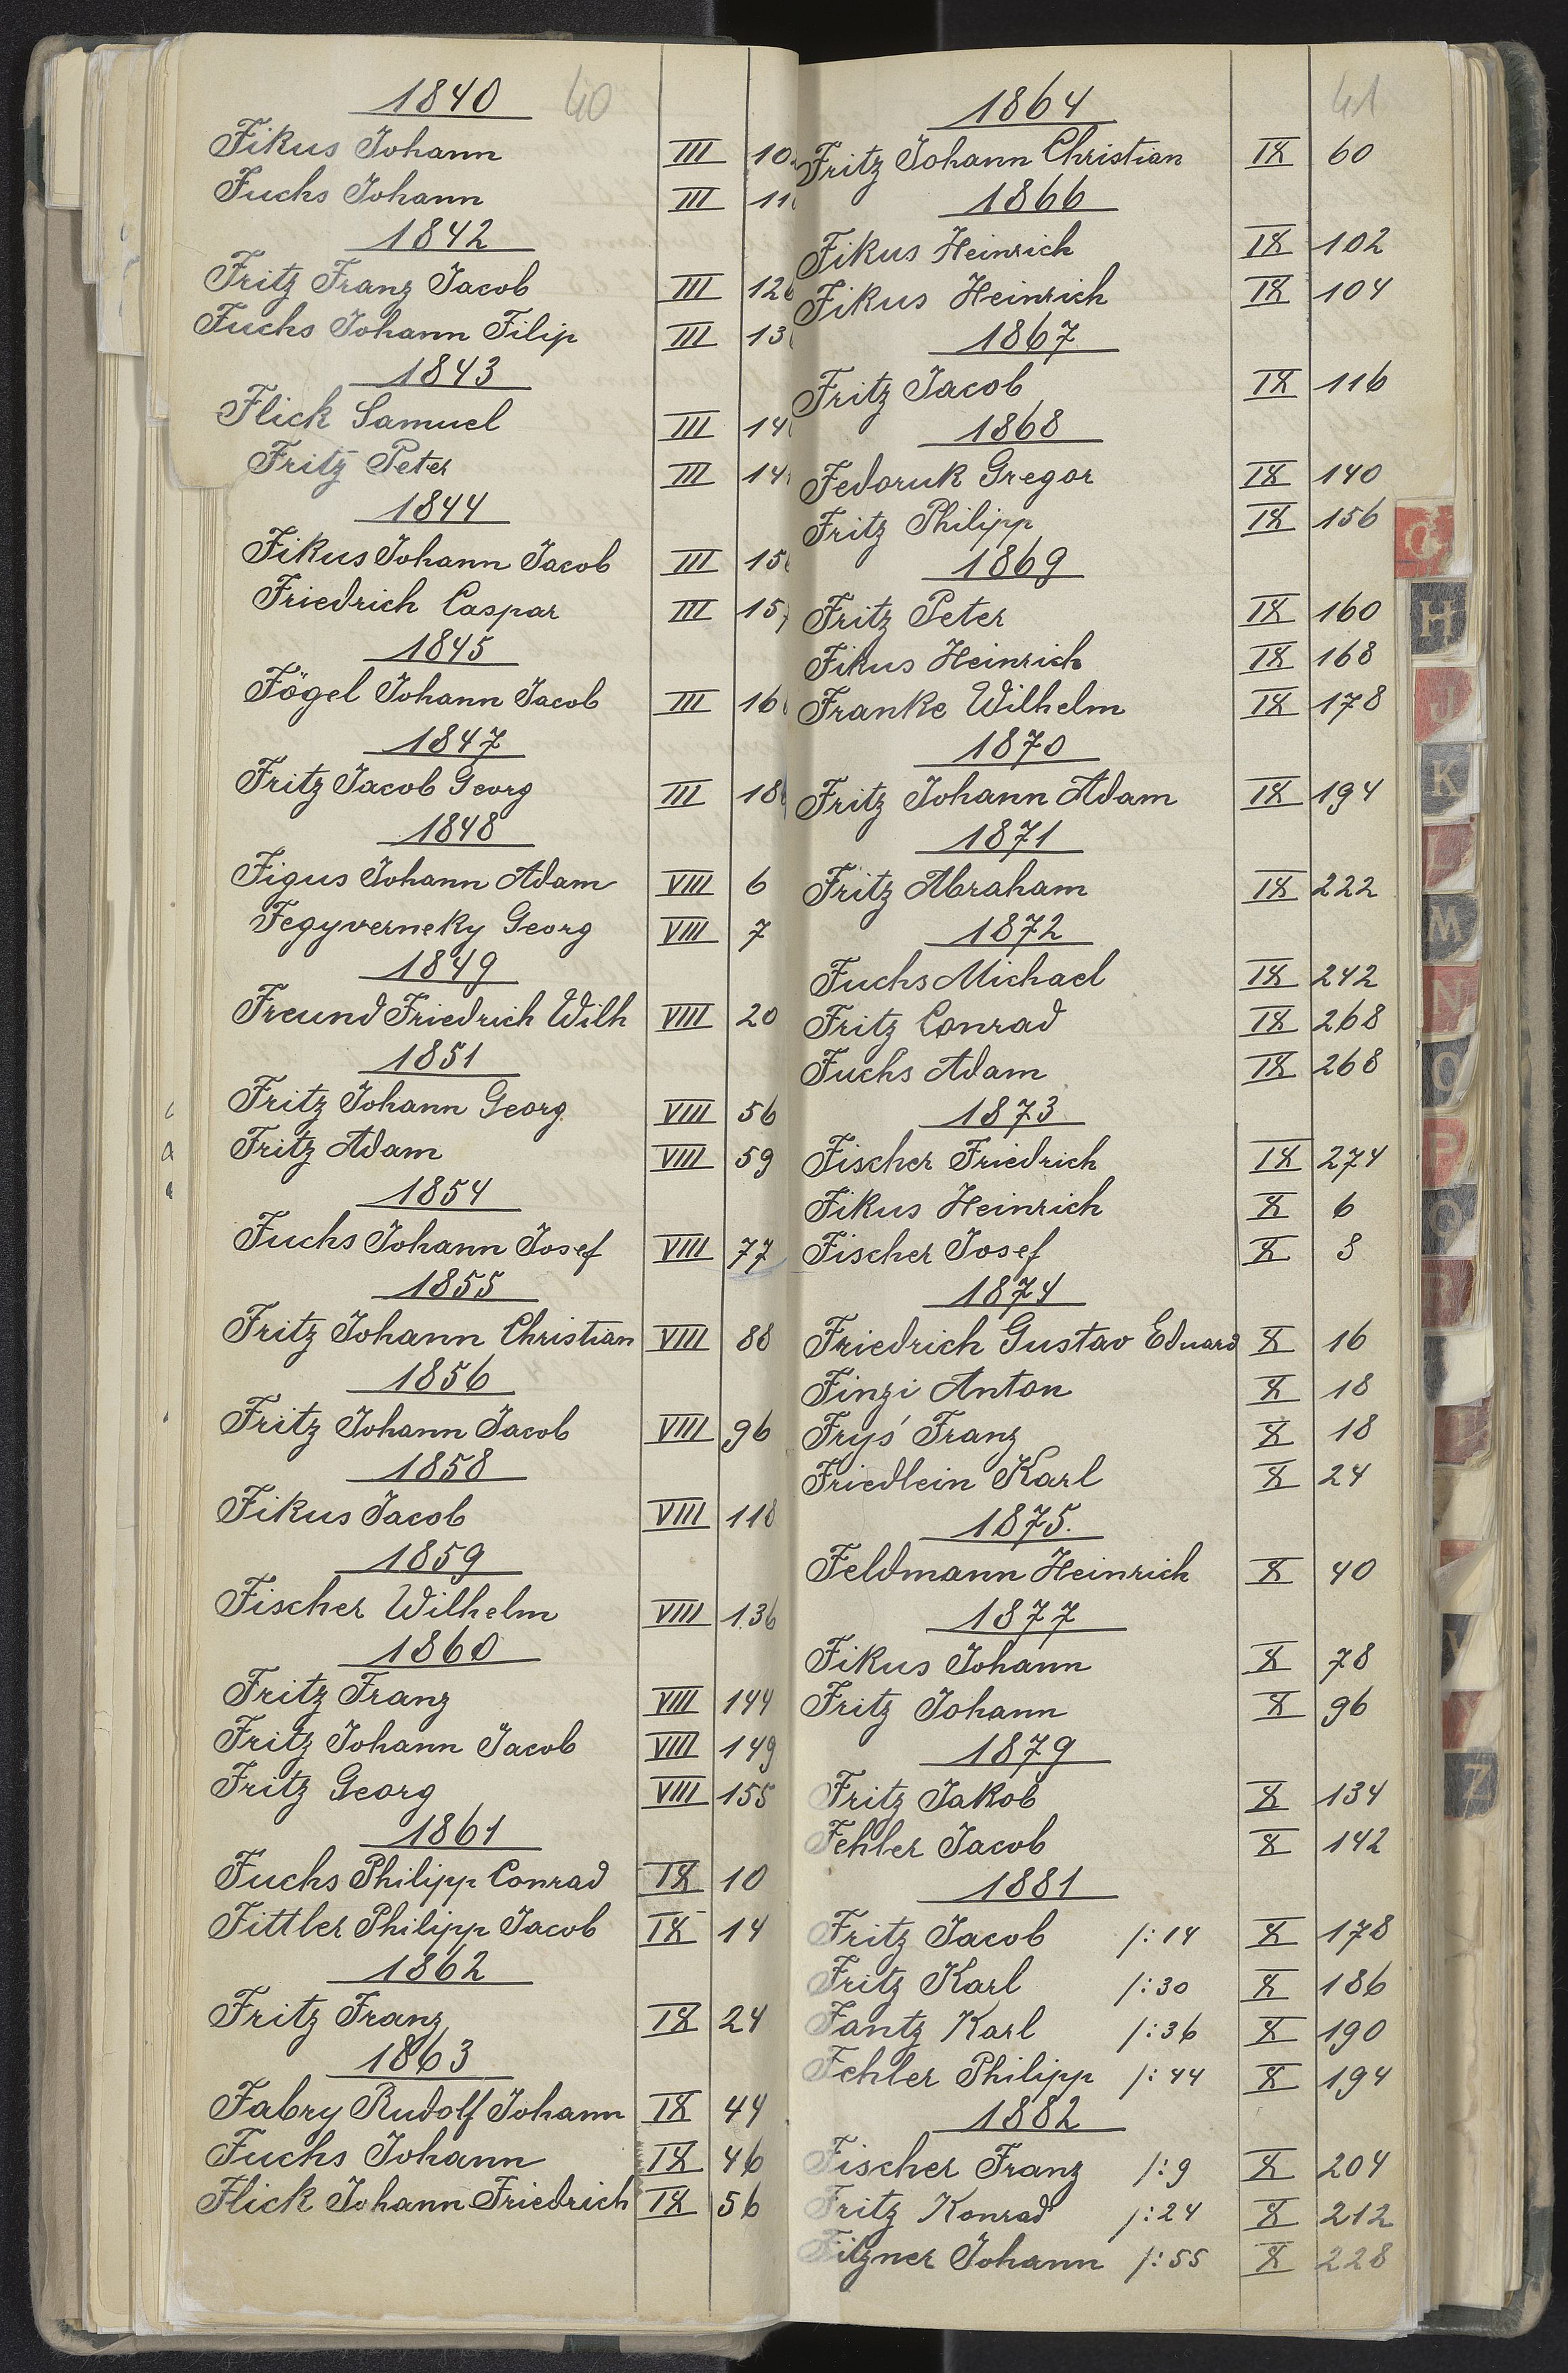 1840 40
Fikus Johann III 10
Fuchs Johann III 11
1842
Fritz Franz Jacob III 126
Fuchs Johann Filip III 13
1843
Flick Samuel III 14
Fritz Peter III 14
1844
Fikus Johann Jacob III 15
Friedrich Caspar III 15
1845
Fögel Johann Jacob III 16
1847
Fritz Jacob Georg III 18
1848
Figus Johann Adam VIII 6
Fegyverneky Georg VIII 7
1849
Freund Friedrich Wilh VIII 20
1851
Fritz Johann Georg VIII 56
Fritz Adam VIII 59
1854
Fuchs Johann Josef VIII 77
1855
Fritz Johann Christian VIII 88
1856
Fritz Johann Jacob VIII 96
1858
Fikus Jacob VIII 118
1859
Fischer Wilhelm VIII 136
1860
Fritz Franz VIII 144
Fritz Johann Jacob VIII 149
Fritz Georg VIII 155
1861
Fuchs Philipp Conrad IX 10
Fittler Philipp Jacob IX 14
1862
Fritz Franz IX 24
1863
Fabry Rudolf Johann IX 44
Fuchs Johann IX 46
Flick Johann Friedrich IX 56
1864 41
Fritz Johann Christian IX 60
1866
Fikus Heinrich IX 102
Fikus Heinrich IX 104
1867
Fritz Jacob IX 116
1868
Fedoruk Gregor IX 140
Fritz Philipp IX 156
1869
Fritz Peter IX 160
Fikus Heinrich IX 168
Franke Wilhelm IX 178
1870
Fritz Johann Adam IX 194
1871
Fritz Abraham IX 222
1872
Fuchs Michael IX 242
Fritz Conrad IX 268
Fuchs Adam IX 268
1873
Fischer Friedrich IX 274
Fikus Heinrich X 6
Fischer Josef X 8
1874
Friedrich Gustav Eduard X 16
Finzi Anton X 18
Fryś Franz X 18
Friedlein Karl X 24
1875.
Feldmann Heinrich X 40
1877
Fikus Johann X 78
Fritz Johann X 96
1879
Fritz Jakob X 134
Fehler Jacob X 142
1881
Fritz Jacob /:14 X 178
Fritz Karl /:30 X 186
Fantz Karl /:36 X 190
Fehler Philipp /:44 X 194
1882
Fischer Franz /:9 X 204
Fritz Konrad /:24 X 212
Filzner Johann /:55 X 228
G
H
J
K
L
M
N
O
P
Q
R
Z